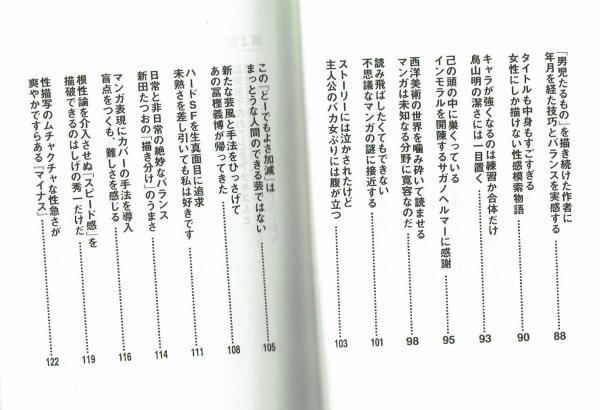 「男児たるもの」を描き続けた作者に
年月を経た技巧とバランスを実感する……88
タイトルも中身もすごすぎる
女性にしか描けない性感模索物語……90
キャラが強くなるのは練習か合体だけ
鳥山明の潔さには一目置く……93
己の頭の中に巣くっている
インモラルを開陳するサガノヘルマーに感謝……95
西洋美術の世界を噛み砕いて読ませる
マンガは未知なる分野に寛容なのだ……98
読み飛ばしたくてもできない
不思議なマンガの謎に接近する……101
ストーリーには泣かされたけど
主人公のバカ女ぶりには腹が立つ……103
この「どーでもよさ加減」は
まっとうな人間のできる芸ではない……105
新たな芸風と手法をひっさげて
あの冨樫義博が帰ってきた……108
ハードSFを生真面目に追求
未熟さを差し引いても私は好きです……111
日常と非日常の絶妙なバランス
新田たつおの「描き分け」のうまさ……114
マンガ表現にカバーの手法を導入
盲点をつくも、難しさを感じる……116
根性論を介入させぬ「スピード感」を
描破できるのはしげの秀一だけだ……119
性描写のムチャクチャな性急さが
爽やかですらある『マイナス』……122